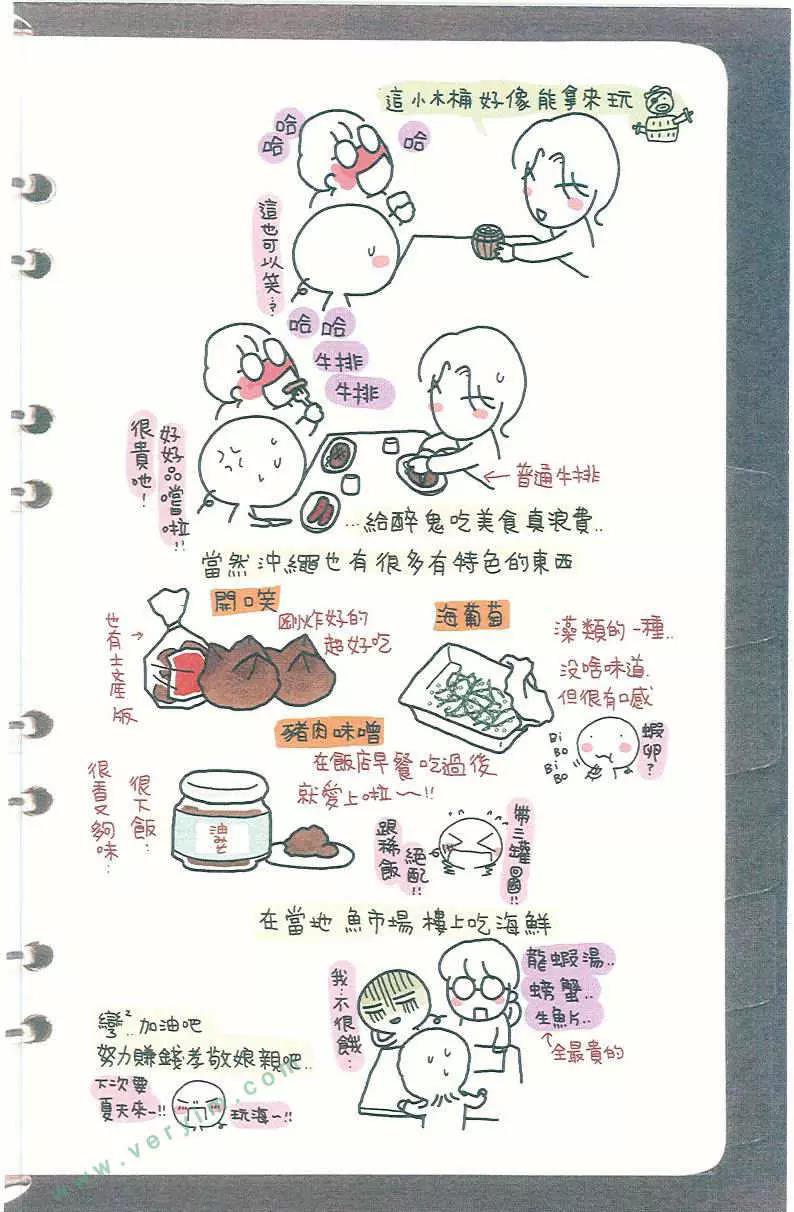 這小木桶好像能拿來玩
哈
哈
哈
這也可以笑..?
哈哈
牛排
牛排
很貴吔!
好好品嚐啦!!
←普通牛排
...給醉鬼吃美食真浪費..
當然沖繩也有很多有特色的東西
開口笑
剛炸好的
超好吃
也有土產版
海葡萄
藻類的一種..
沒啥味道.
但很有口感
Bi
Bo
Bi
Bo
蝦卵?
豬肉味噌
在飯店早餐吃過後
就愛上啦~~!!
很下飯..
很香又夠味..
油みそ
跟稀飯
絕配!!
帶三罐回國!!
在當地魚市場樓上吃海鮮
我..不很餓..
龍蝦湯..
螃蟹..
生魚片..
全最貴的
彎²..加油吧
努力賺錢孝敬娘親吧..
下次要
夏天來~!!
玩海~!!
www.veryim.com